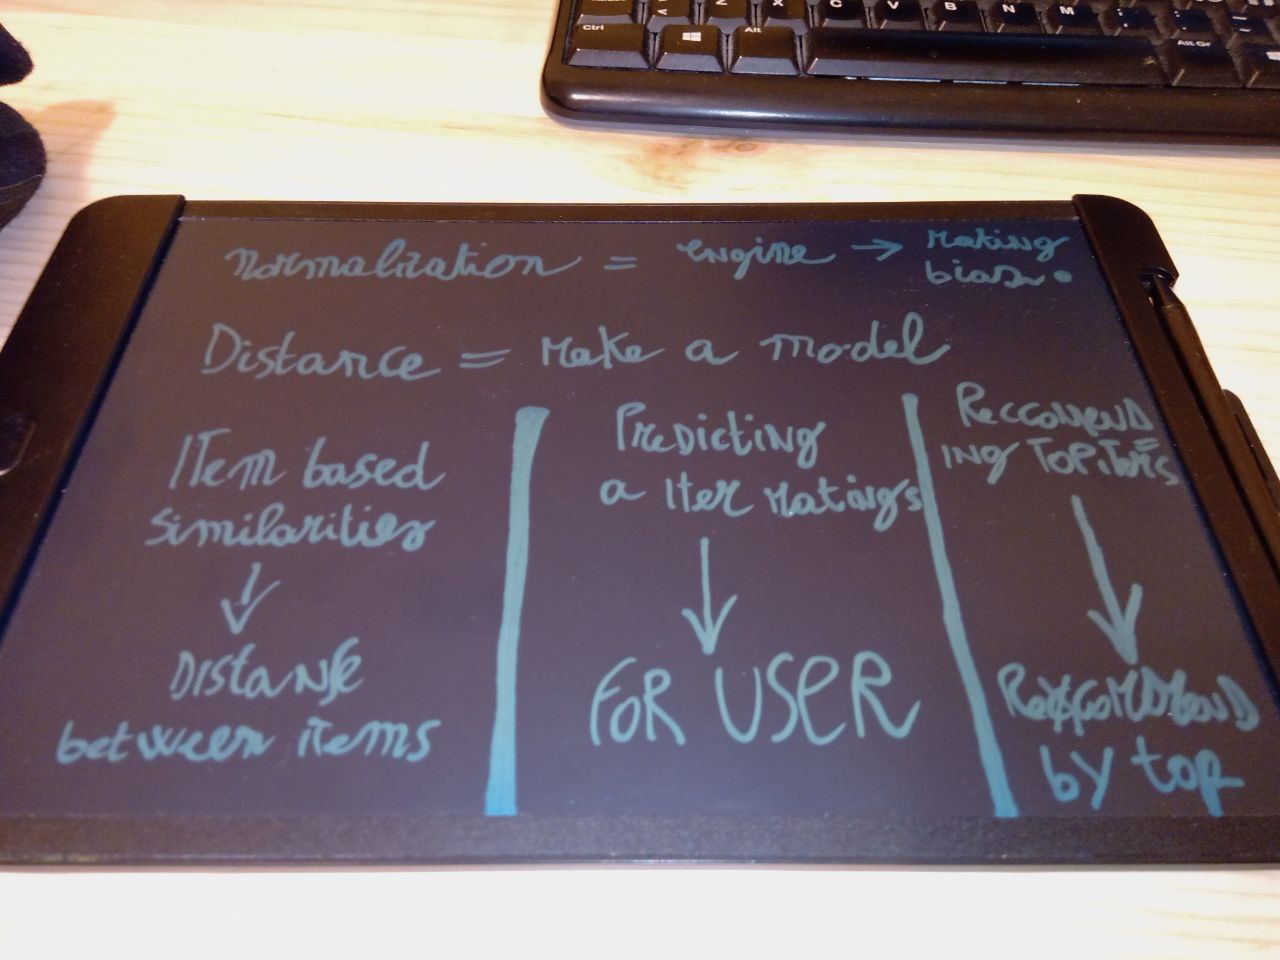 Ctrl
Alt
Z X C V B N M
Alt Gr
normalization = engine → Rating
bias.
Distance = Make a model
ITem based
similarities
↓
Distance
between items
PREDICTING
a ITer Ratings
↓
FOR USER
ReccomenD=
ING TOP ITeRS
↓
by top